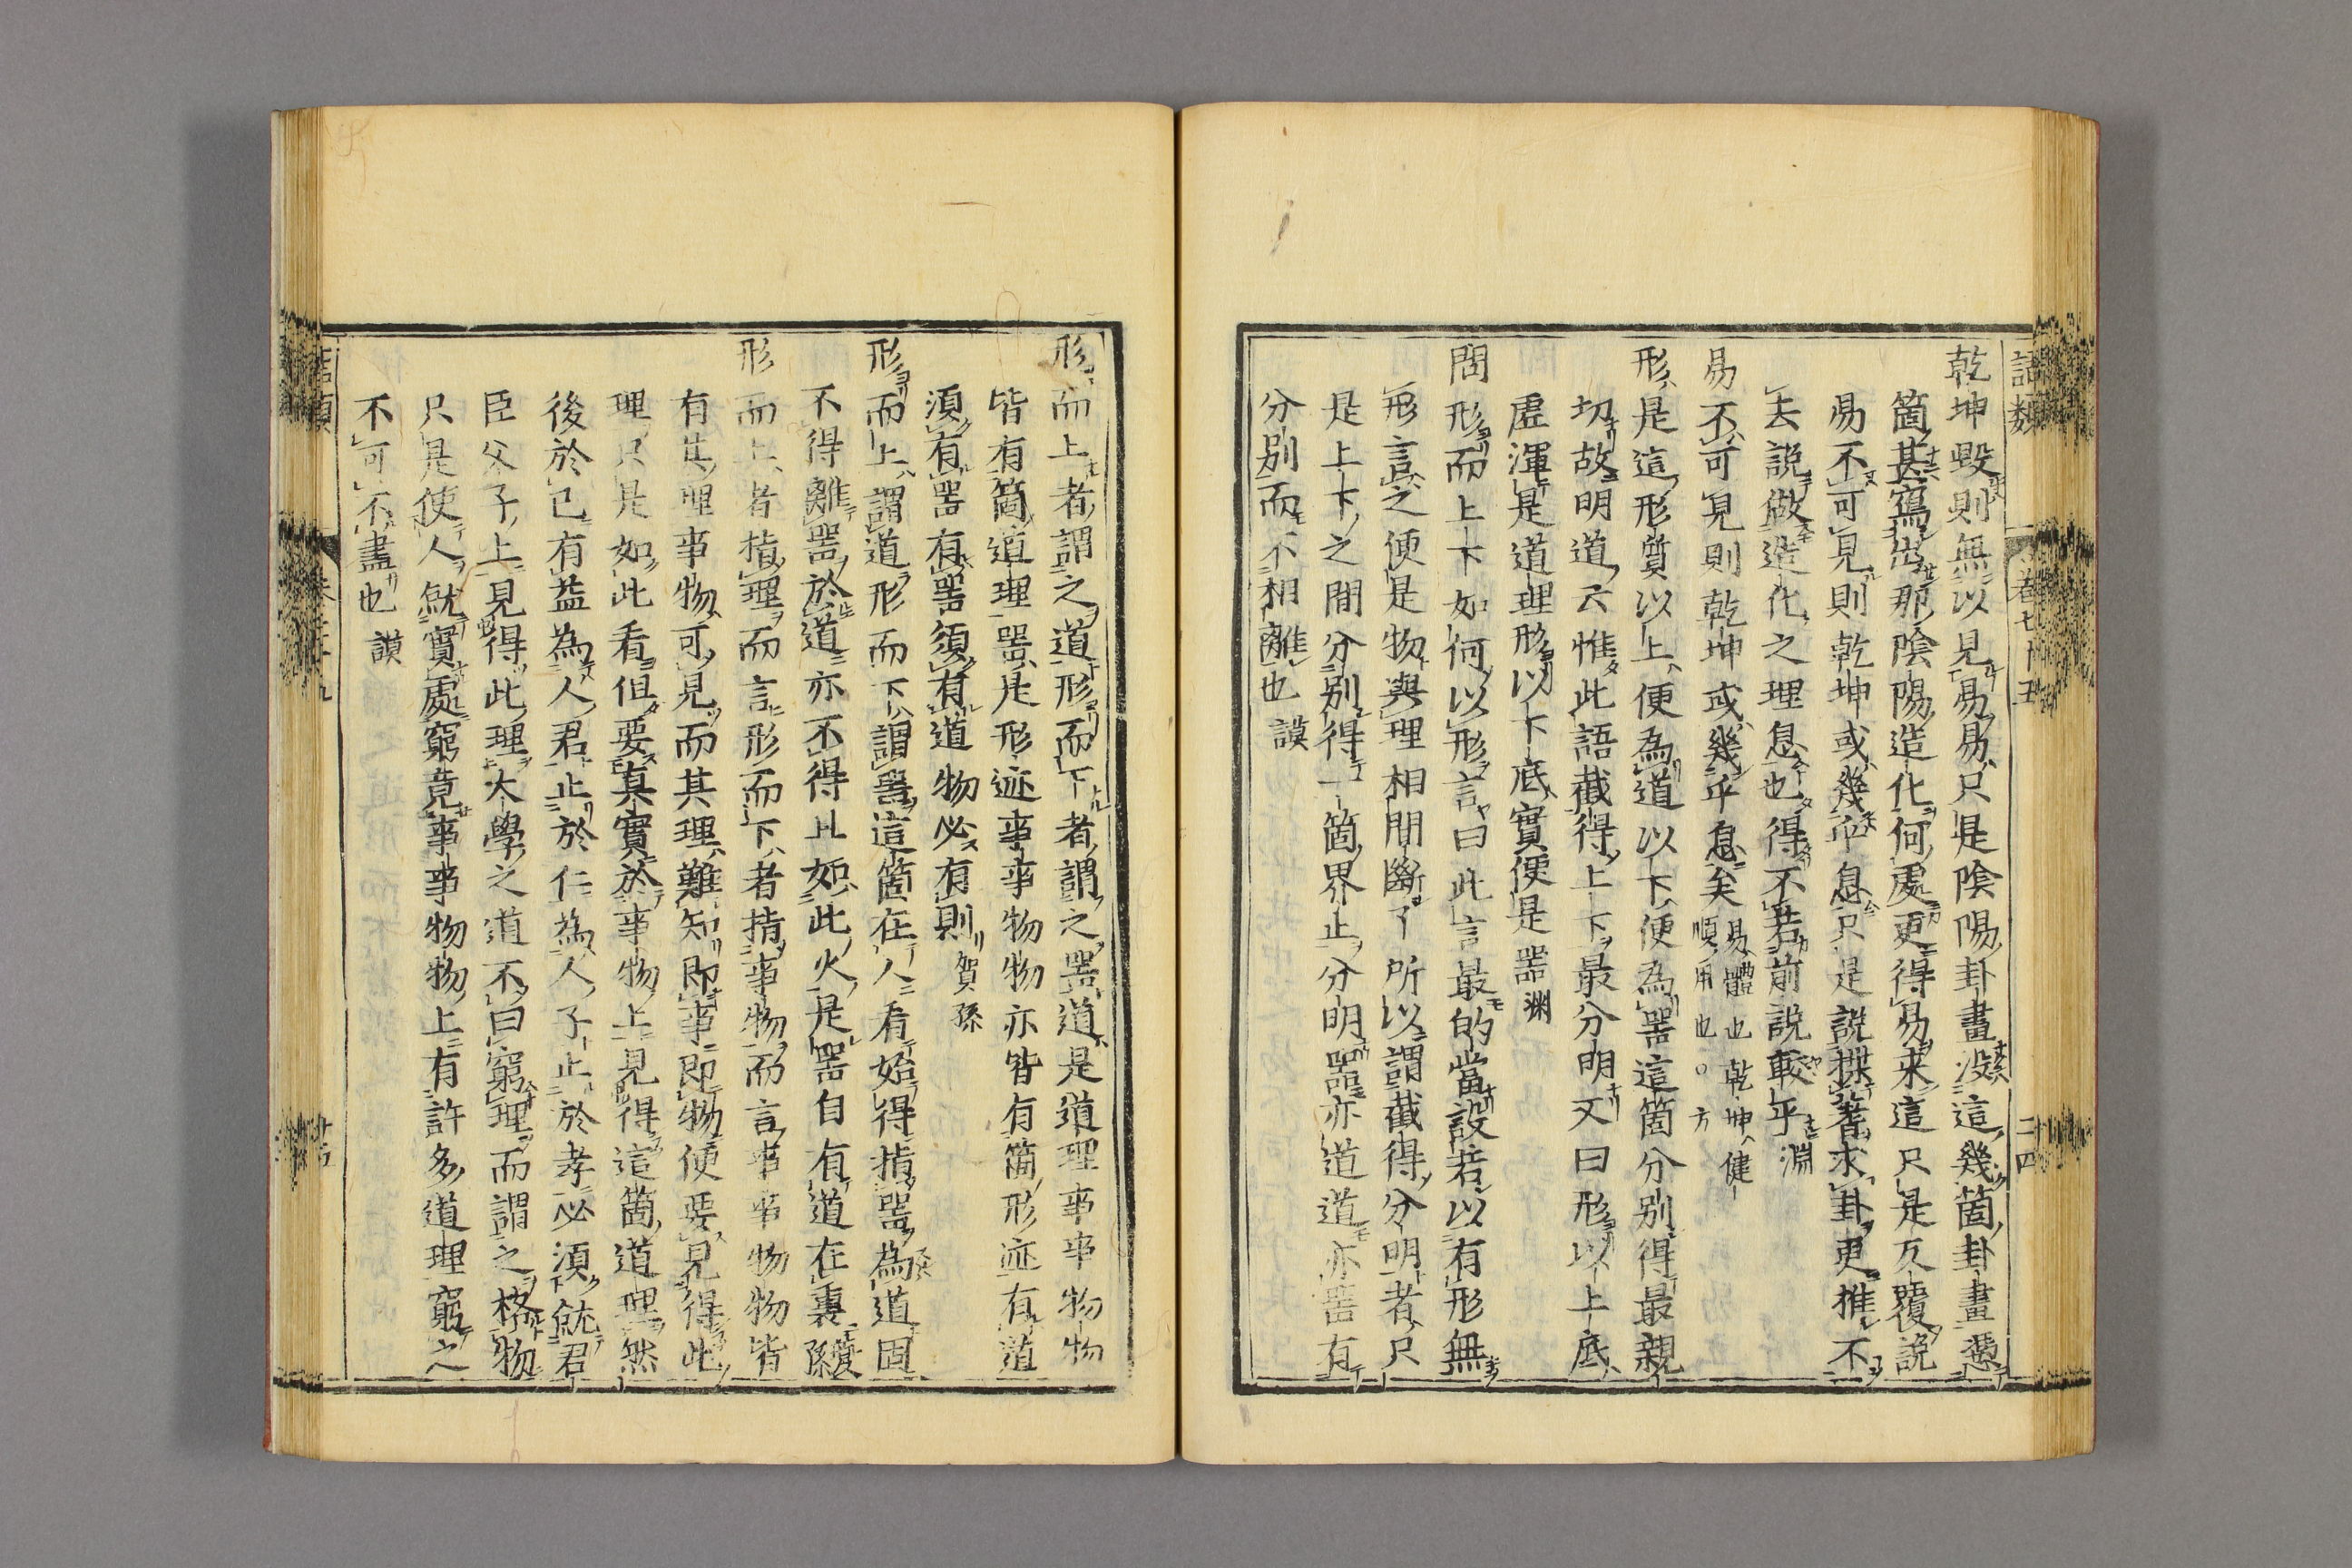 語類
卷七十五
二四
乾坤毀則無以見易易只是陰陽卦畫没這幾箇卦畫憑
箇甚寫出那陰陽造化何處更得易來這只是反覆說
易不可見則乾坤或幾乎息只是說揲蓍求卦更推不
去說做造化之理息也得不若前說較乎淵
易不可見則乾坤或幾乎息矣易體也乾坤健
順用也○方
形是這形質以上便為道以下便為噐這箇分別得最親
切故明道云惟此語截得上下最分明又曰形以上底
虛渾是道理形以下底實便是噐淵
問形而上下如何以形言曰此言最的當設若以有形無
形言之便是物與理相間斷了所以謂截得分明者只
是上下之間分別得一箇界止分明噐亦道道亦噐有
分別而不相離也謨
形而上者謂之道形而下者謂之噐道是道理事事物物
皆有箇道理噐是形迹事事物物亦皆有箇形迹有道
須有噐有噐須有道物必有則賀孫
形而上謂道形而下謂噐這箇在人看始得指噐為道固
不得離噐於道亦不得且如此火是噐自有道在裏夔孫
形而上者指理而言形而下者指事物而言事事物物皆
有其理事物可見而其理難知即事即物便要見得此
理只是如此看但要真實於事物上見得這箇道理然
後於己有益為人君止於仁為人子止於孝必須就君
臣父子上見得此理大學之道不曰窮理而謂之格物
只是使人就實處窮竟事事物物上有許多道理窮之
不可不盡也謨